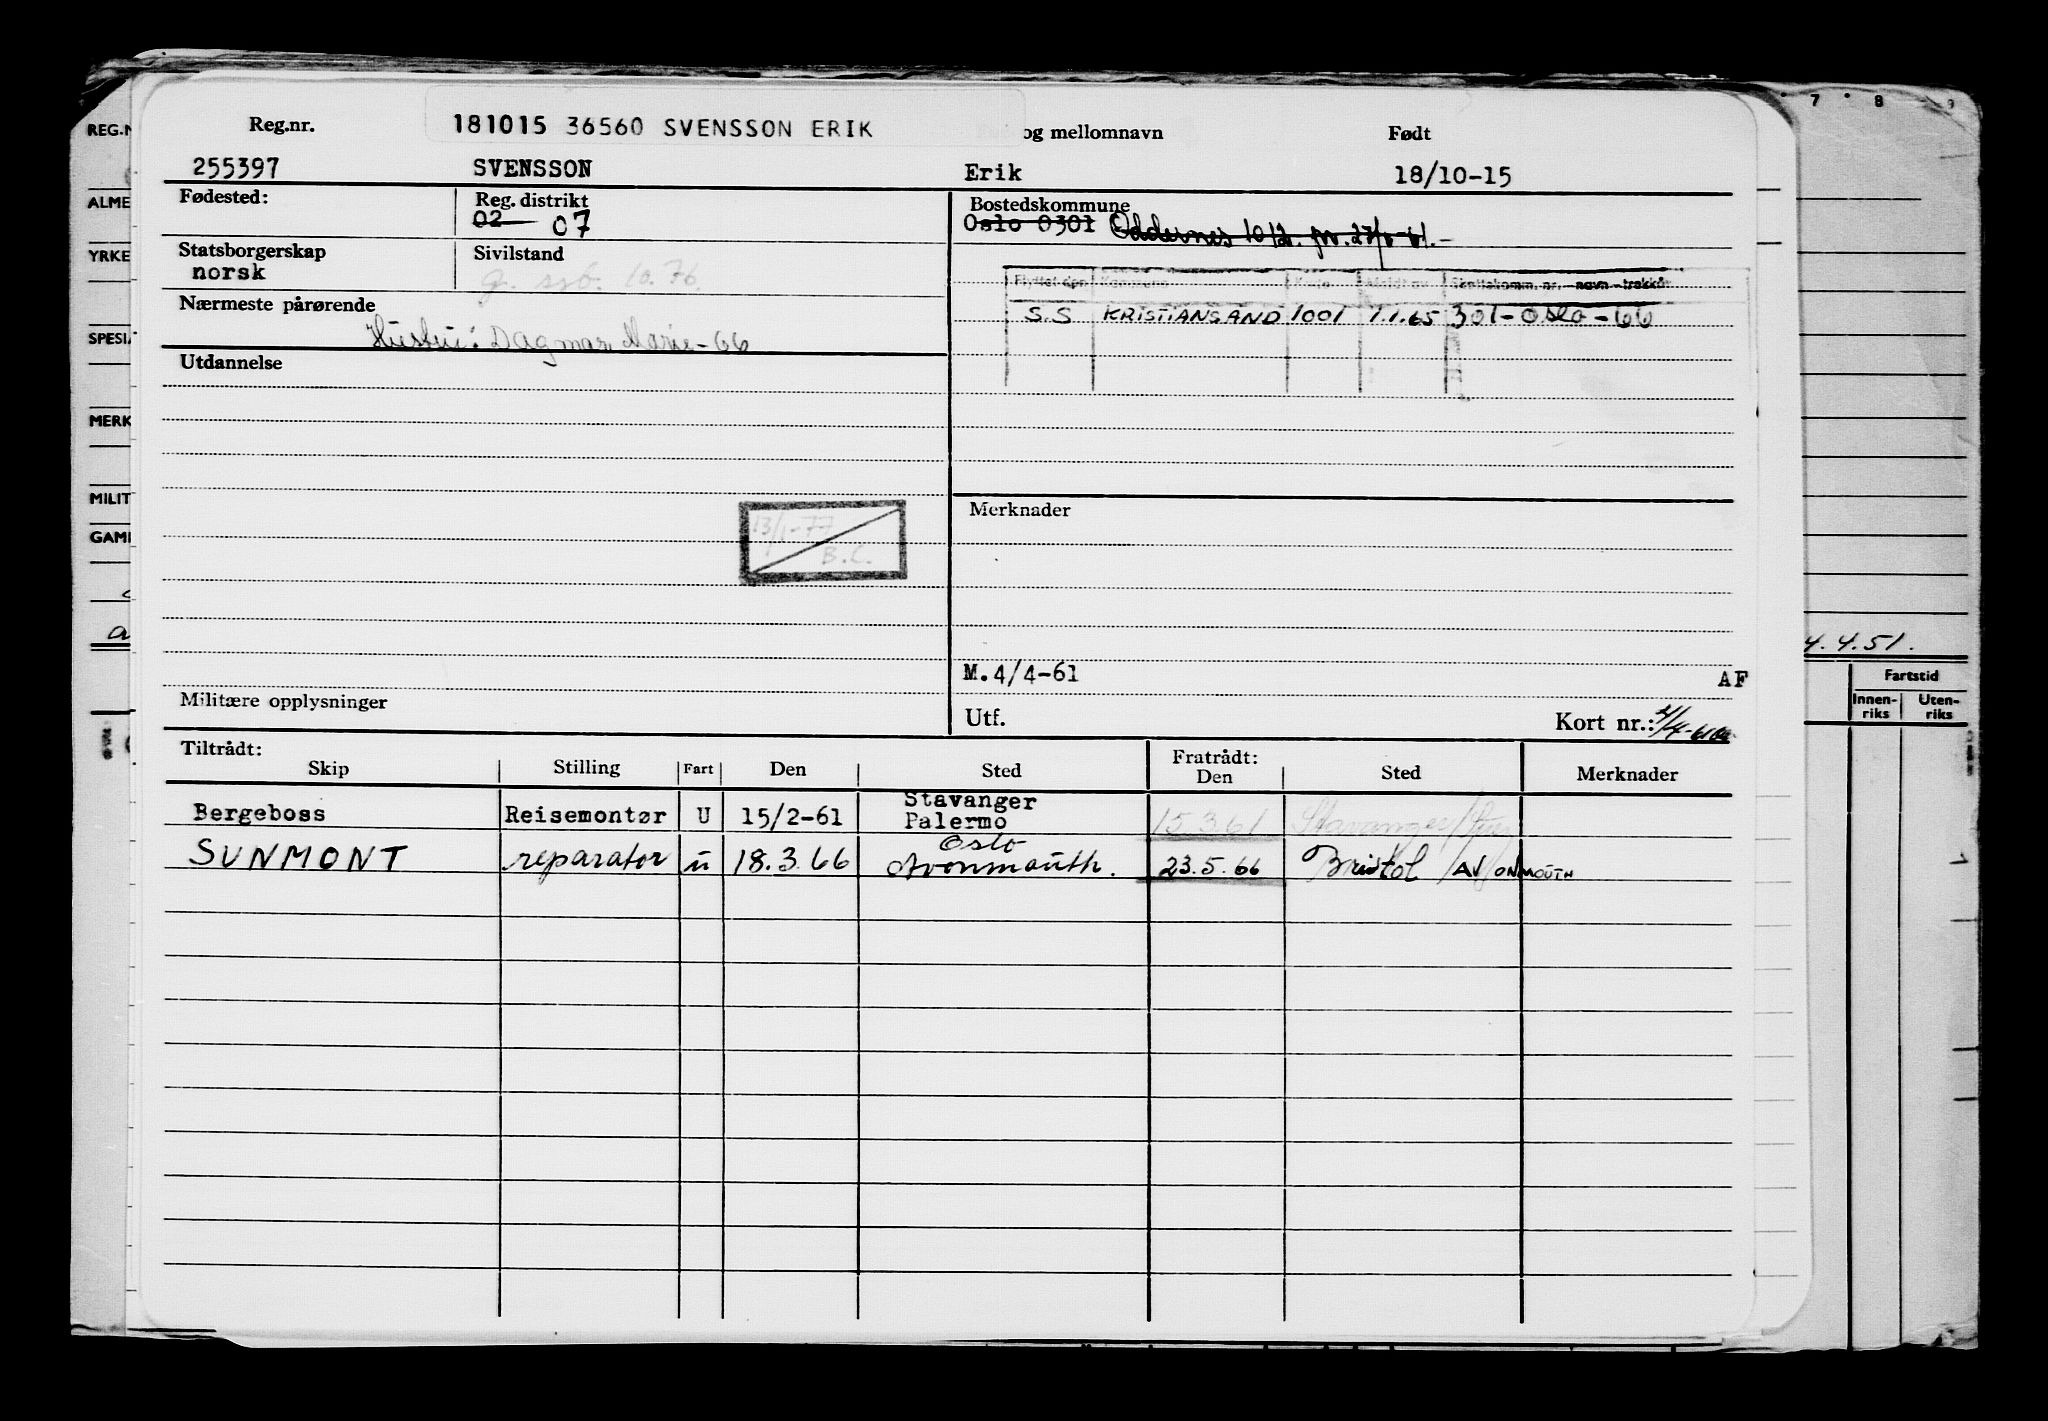 7 8 9
Reg.nr. 181015 36560 SVENSSON ERIK og mellomnavn Født
REG.N
255397 SVENSSON Erik 18/10-15
Fødested: Reg. distrikt Bostedskommune
ALME
02 07 Oslo 0301 Oddernes 1012.
Statsborgerskap Sivilstand
YRKE
norsk g. 10.76.
Nærmeste pårørende
S.S KRISTIANSAND 1001 1.1.65 301-Oslo-66
Hustru: Dagmar Marie-66
SPESIA
Utdannelse
MERK
MILIT
Merknader
GAMI
13/1-77
B.C.
4.4.51.
M.4/4-61 AF
Fartstid
Militære opplysninger
Innen-riks Uten-riks
Utf. Kort nr.:
Tiltrådt: Fratrådt:
Skip Stilling Fart Den Sted Den Sted Merknader
Bergeboss Reisemontør U 15/2-61 Stavanger Palermo 15.3.61 Stavanger/
SUNMONT reparatør u 18.3.66 Oslo Avonmouth. 23.5.66 Bristol /AVONMOUTH